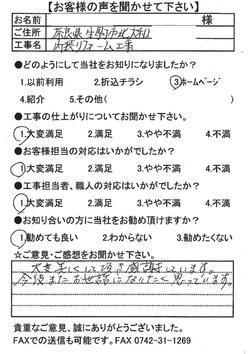 【お客様の声を聞かせて下さい】
お名前 様
ご住所 奈良県生駒市北大和
工事名 内装リフォーム工事
●どのようにして当社をお知りになりましたか？
1.以前利用 2.折込チラシ 3.ホームページ
4.紹介 5.その他( )
●工事の仕上がりについてお聞かせ下さい。
1.大変満足 2.満足 3.やや不満 4.不満
●お客様担当の対応はいかがでしたか？
1.大変満足 2.満足 3.やや不満 4.不満
●工事担当者、職人の対応はいかがでしたか？
1.大変満足 2.満足 3.やや不満 4.不満
●お知り合いの方に当社をお勧め頂けますか？
1.勧めても良い 2.わからない 3.勧めたくない
☆ご意見・ご感想をお聞かせ下さい。
大変美しくして頂き感謝しています。
今後またお世話になりたく思っています。
貴重なご意見、誠にありがとうございました。
FAXでの送信も可能です。FAX 0742-31-1269